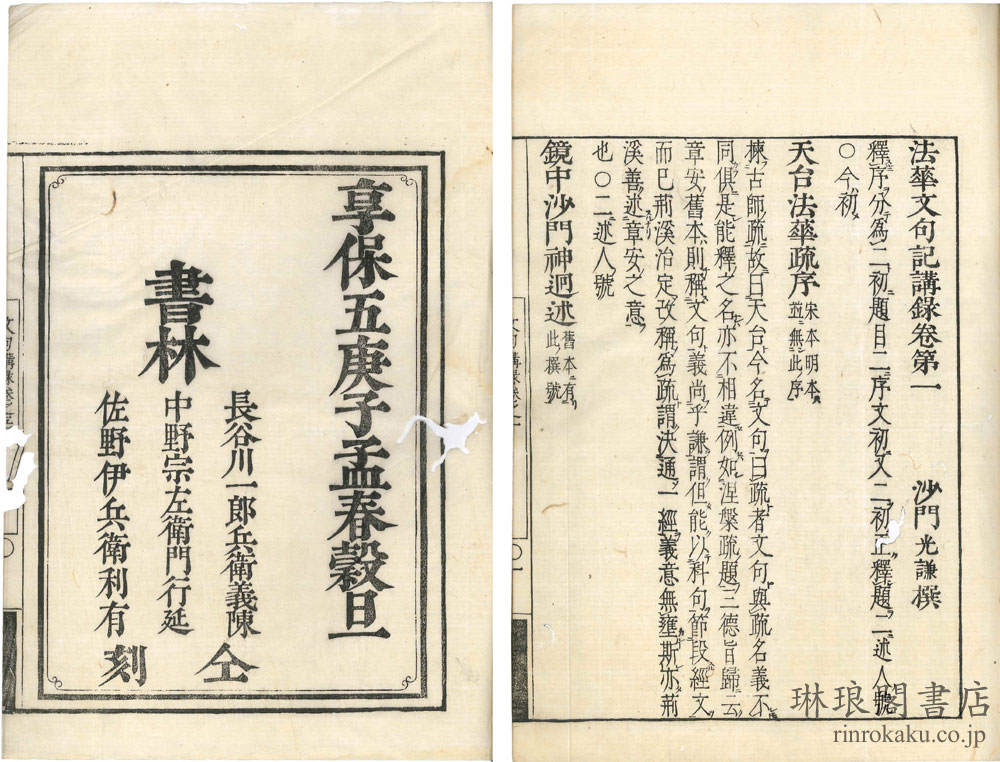 法華文句記講錄卷第一
沙門光謙撰
釋序分為二初題目二序文初文二初正釋題二述人號
○今初
天台法華疏序 宋本明本並無此序
棟古師疏故曰天台今名文句曰疏者文句與疏名義不
同俱是能釋之名亦不相違例如涅槃疏題三德旨歸云
章安舊本則稱文句義尚乎謙謂但能以科句節段經文
而已荊溪治定改稱為疏謂決通一經義意無壅斯亦荊
溪善述章安之意
也○二述人號
鏡中沙門神迥述 舊本有此撰號
享保五庚子孟春穀旦
書林
長谷川一郎兵衛義陳
中野宗左衛門行延
佐野伊兵衛利有
仝刻
琳琅閣書店
rinrokaku.co.jp